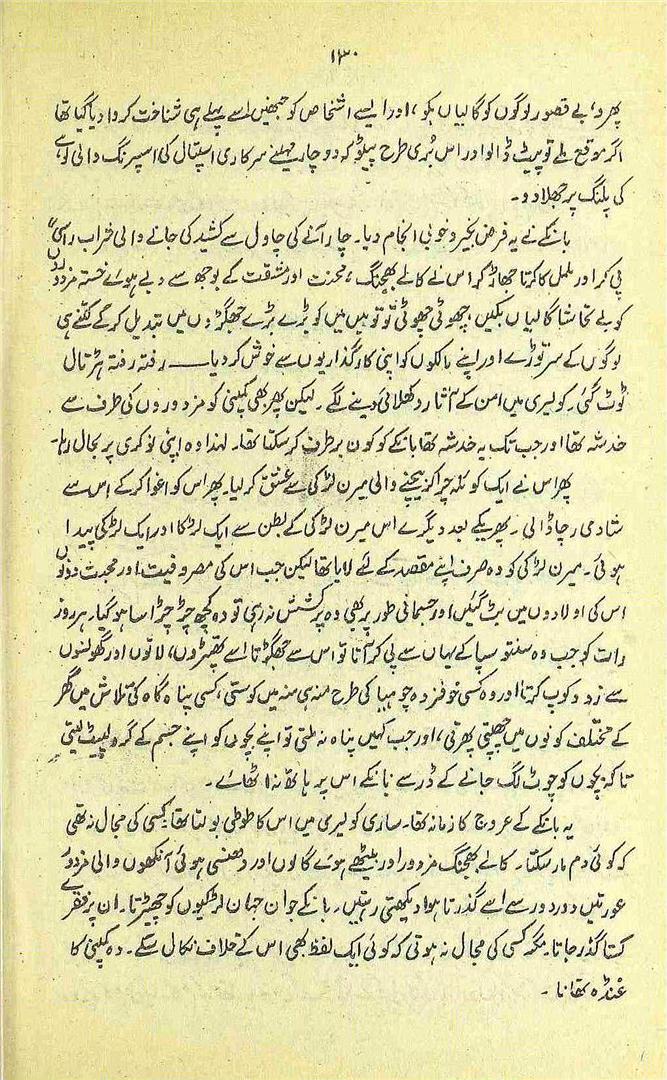 ۱۳۰
پھرو، بے قصور لوگوں کو گالیاں بکو، اور ایسے اشخاص کو جنھیں اسے پہلے ہی شناخت کروا دیا گیا تھا
اگر موقع ملے تو پیٹ ڈالو اور اس بُری طرح پیٹو کہ دو چار مہینے سرکاری اسپتال کی اسپرنگ والی لوہے
کی پلنگ پر جھلا دو۔
بانکے نے یہ فرض بخیر و خوبی انجام دیا۔ چار آنے کی چاول سے کشید کی جانے والی خراب راسی
پی کر اور ململ کا کرتا جھاڑ کر اس نے کالے بھجنگ، محنت اور مشقت کے بوجھ سے دبے ہوئے خستہ مزدوروں
کو بے تحاشا گالیاں بکیں، چھوٹی چھوٹی تو تو میں میں کو بڑے بڑے جھگڑوں میں تبدیل کر کے کتنے ہی
لوگوں کے سر توڑے اور اپنے مالکوں کو اپنی کارگذاریوں سے خوش کر دیا ــــ رفتہ رفتہ ہڑتال
ٹوٹ گئی۔ کولیری میں امن کے آثار دکھلائی دینے لگے۔ لیکن پھر بھی کمپنی کو مزدوروں کی طرف سے
خدشہ تھا اور جب تک یہ خدشہ تھا بانکے کو کون برطرف کر سکتا تھا۔ لہٰذا وہ اپنی نوکری پر بحال رہا۔
پھر اس نے ایک کوئلہ چرا کر بیچنے والی میرن لڑکی سے عشق کر لیا۔ پھر اس کو اغوا کر کے اس سے
شادی رچا ڈالی۔ پھر یکے بعد دیگرے اس میرن لڑکی کے بطن سے ایک لڑکا اور ایک لڑکی پیدا
ہوئی۔ میرن لڑکی کو وہ صرف اپنے مقصد کے لئے لایا تھا لیکن جب اس کی مصروفیت اور محبت دونوں
اس کی اولادوں میں بٹ گئیں اور جسمانی طور پر بھی وہ پرکشش نہ رہی تو وہ کچھ چڑچڑا سا ہو گیا۔ ہر روز
رات کو جب وہ سنتو سپا کے یہاں سے پی کر آتا تو اس سے جھگڑتا اسے تھپڑوں، لاتوں اور گھونسوں
سے زدوکوب کرتا اور وہ کسی خوفزدہ چوہیا کی طرح منہ ہی منہ میں کوستی، کسی پناہ گاہ کی تلاش میں گھر
کے مختلف کونوں میں چھپتی پھرتی، اور جب کہیں پناہ نہ ملتی تو اپنے بچوں کو اپنے جسم کے گرد لپیٹ لیتی
تاکہ بچوں کو چوٹ لگ جانے کے ڈر سے بانکے اس پر ہاتھ نہ اٹھائے۔
یہ بانکے کے عروج کا زمانہ تھا۔ ساری کولیری میں اس کا طوطی بولتا تھا کسی کی مجال نہ تھی
کہ کوئی دم مار سکتا۔ کالے بھجنگ مزدور اور بیٹھے ہوئے گالوں اور دھنسی ہوئی آنکھوں والی مزدور
عورتیں دور دور سے اسے گذرتا ہوا دیکھتی رہتیں۔ بانکے جوان جہان لڑکیوں کو چھیڑتا۔ ان پر فقرے
کستا گذر جاتا مگر کسی کی مجال نہ ہوتی کہ کوئی ایک لفظ بھی اس کے خلاف نکال سکے۔ وہ کمپنی کا
غنڈہ تھا نا۔